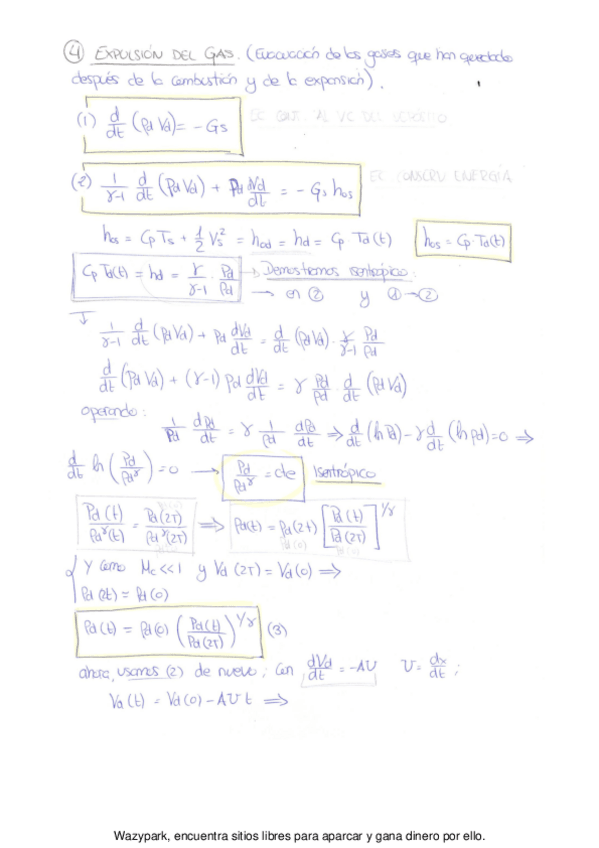 ④ EXPULSIÓN DEL GAS. (Evacuación de los gases que han quedado
después de la combustión y de la expansión).
(1) d/dt (ρd Vd) = - Gs EC CONT. AL VC DEL
(2) 1/(γ-1) d/dt (Pd Vd) + Pd dVd/dt = - Gs hos EC CONSERV ENERGÍA
hos = Cp Ts + 1/2 Vs² = hod = hd = Cp Td(t) hos = Cp·Td(t)
Cp Td(t) = hd = γ/(γ-1) · Pd/ρd → Demostramos isentrópico:
→ en ② y ① → ②
↓ 1/(γ-1) d/dt (Pd Vd) + Pd dVd/dt = d/dt (ρd Vd) · γ/(γ-1) Pd/ρd
d/dt (Pd Vd) + (γ-1) Pd dVd/dt = γ Pd/ρd · d/dt (ρd Vd)
operando:
1/Pd dPd/dt = γ 1/ρd dρd/dt ⇒ d/dt (ln Pd) - γ d/dt (ln ρd) = 0 ⇒
d/dt ln (Pd/ρd^γ) = 0 → Pd/ρd^γ = cte Isentrópico
Pd(t)/ρd^γ(t) = Pd(2τ)/ρd^γ(2τ) ⇒ ρd(t) = ρd(2τ) [Pd(t)/Pd(2τ)]^1/γ
ρd(0) Pd(0)
Y como Mc << 1 y Vd(2τ) = Vd(0) ⇒
ρd(2τ) = ρd(0)
ρd(t) = ρd(0) (Pd(t)/Pd(2τ))^1/γ (3)
ahora, usamos (2) de nuevo; con dVd/dt = -AU U = dx/dt ;
Vd(t) = Vd(0) - AUt ⇒
Wazypark, encuentra sitios libres para aparcar y gana dinero por ello.